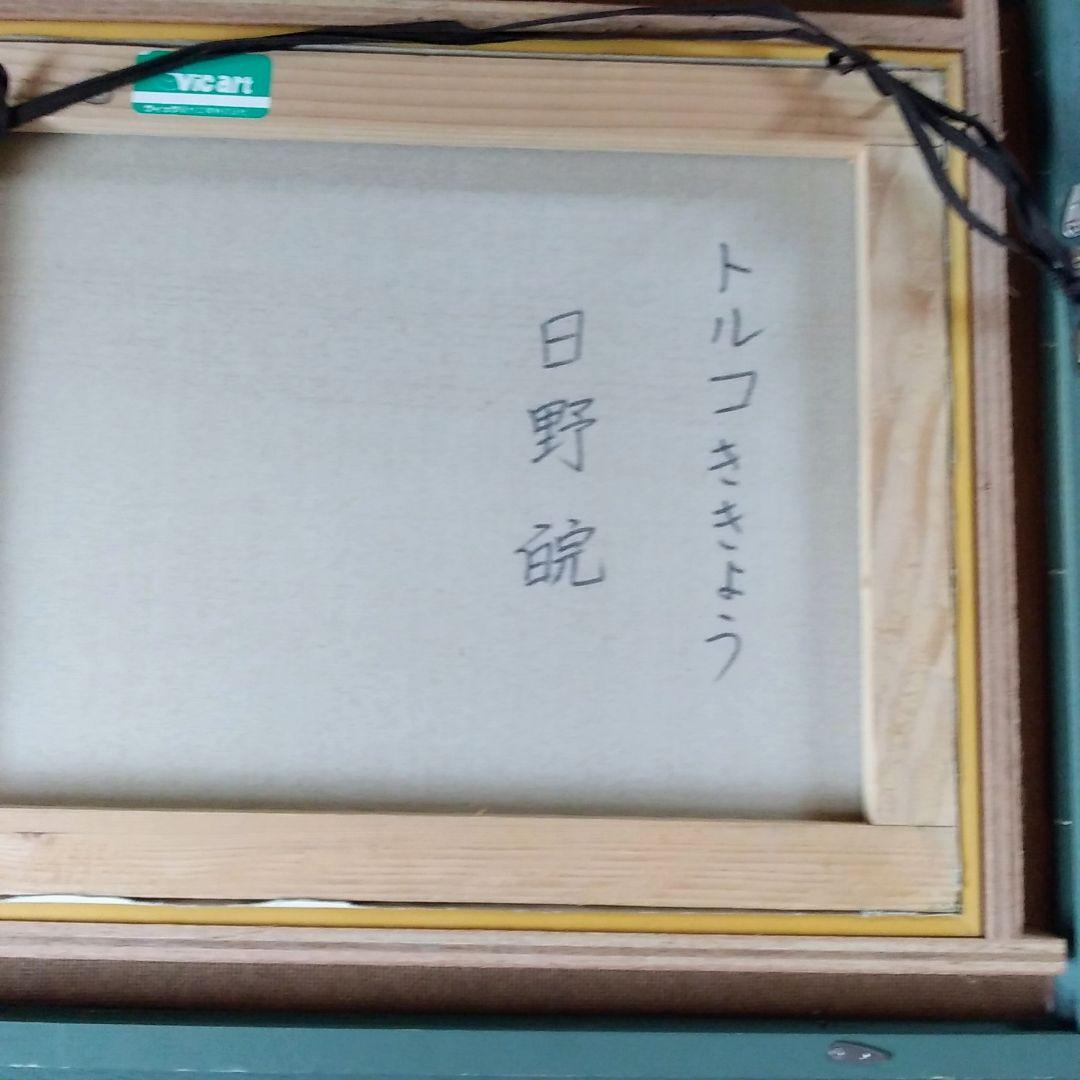 Vicart
トルコききょう
日野皖